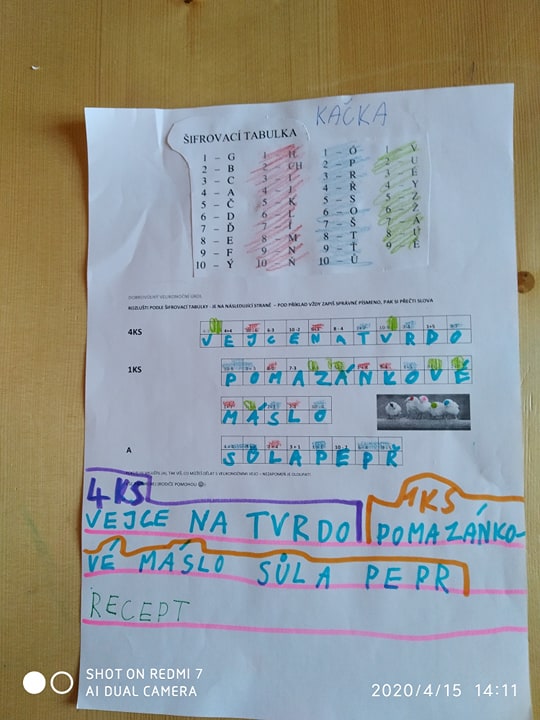 KAČKA
ŠIFROVACÍ TABULKA
1 – G 1 – H 1 – Ó 1 – V
2 – B 2 – CH 2 – P 2 – U
3 – C 3 – I 3 – R 3 – É
4 – A 4 – J 4 – Ř 4 – Y
5 – Č 5 – K 5 – S 5 – Z
6 – D 6 – L 6 – O 6 – Ž
7 – Ď 7 – Í 7 – Š 7 – Á
8 – E 8 – M 8 – T 8 – Ú
9 – F 9 – N 9 – Ť 9 – Ě
10 – Ý 10 – Ň 10 – Ů
DOBROVOLNÝ VELIKONOČNÍ ÚKOL
ROZLUŠTI PODLE ŠIFROVACÍ TABULKY - JE NA NÁSLEDUJÍCÍ STRANĚ – POD PŘÍKLAD VŽDY ZAPIŠ SPRÁVNÉ PÍSMENO, PAK SI PŘEČTI SLOVA
4KS
VEJCE NA TVRDO
1KS
POMAZÁNKOVÉ
MÁSLO
A
SŮL A PEPŘ
4KS 1KS
VEJCE NA TVRDO POMAZÁŃKO-
VÉ MÁSLO SŮL A PEPŘ
RECEPT
SHOT ON REDMI 7
AI DUAL CAMERA
2020/4/15 14:11